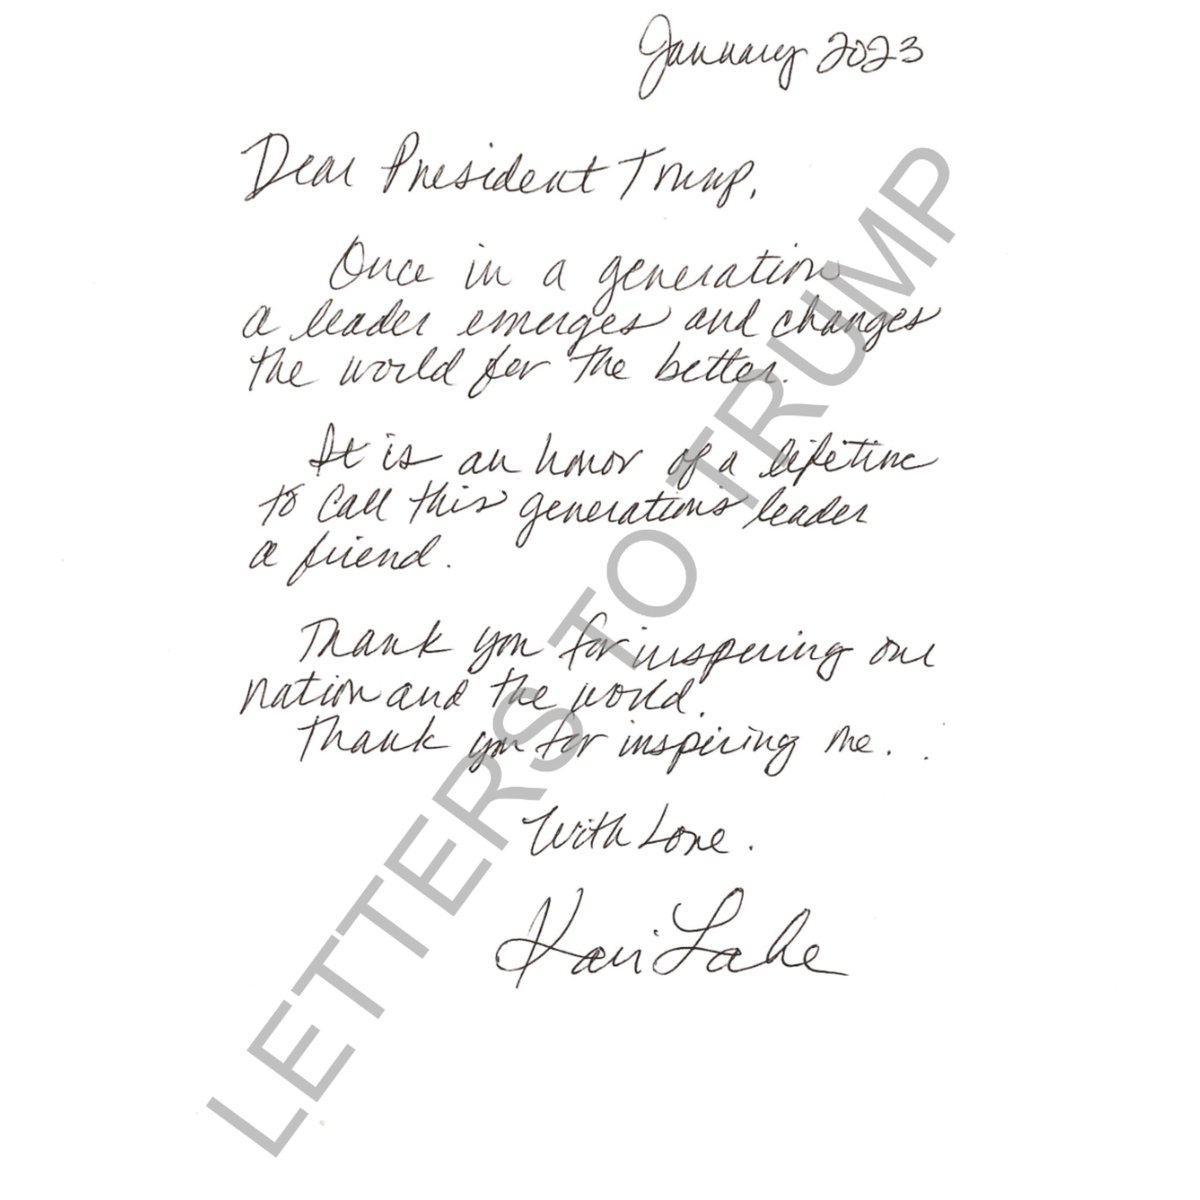 January 2023
Dear President Trump,
Once in a generation
a leader emerges and changes
the world for the better.
It is an honor of a lifetime
to call this generation's leader
a friend.
Thank you for inspiring our
nation and the world.
Thank you for inspiring me.
With Love.
Kari Lake
LETTERS TO TRUMP